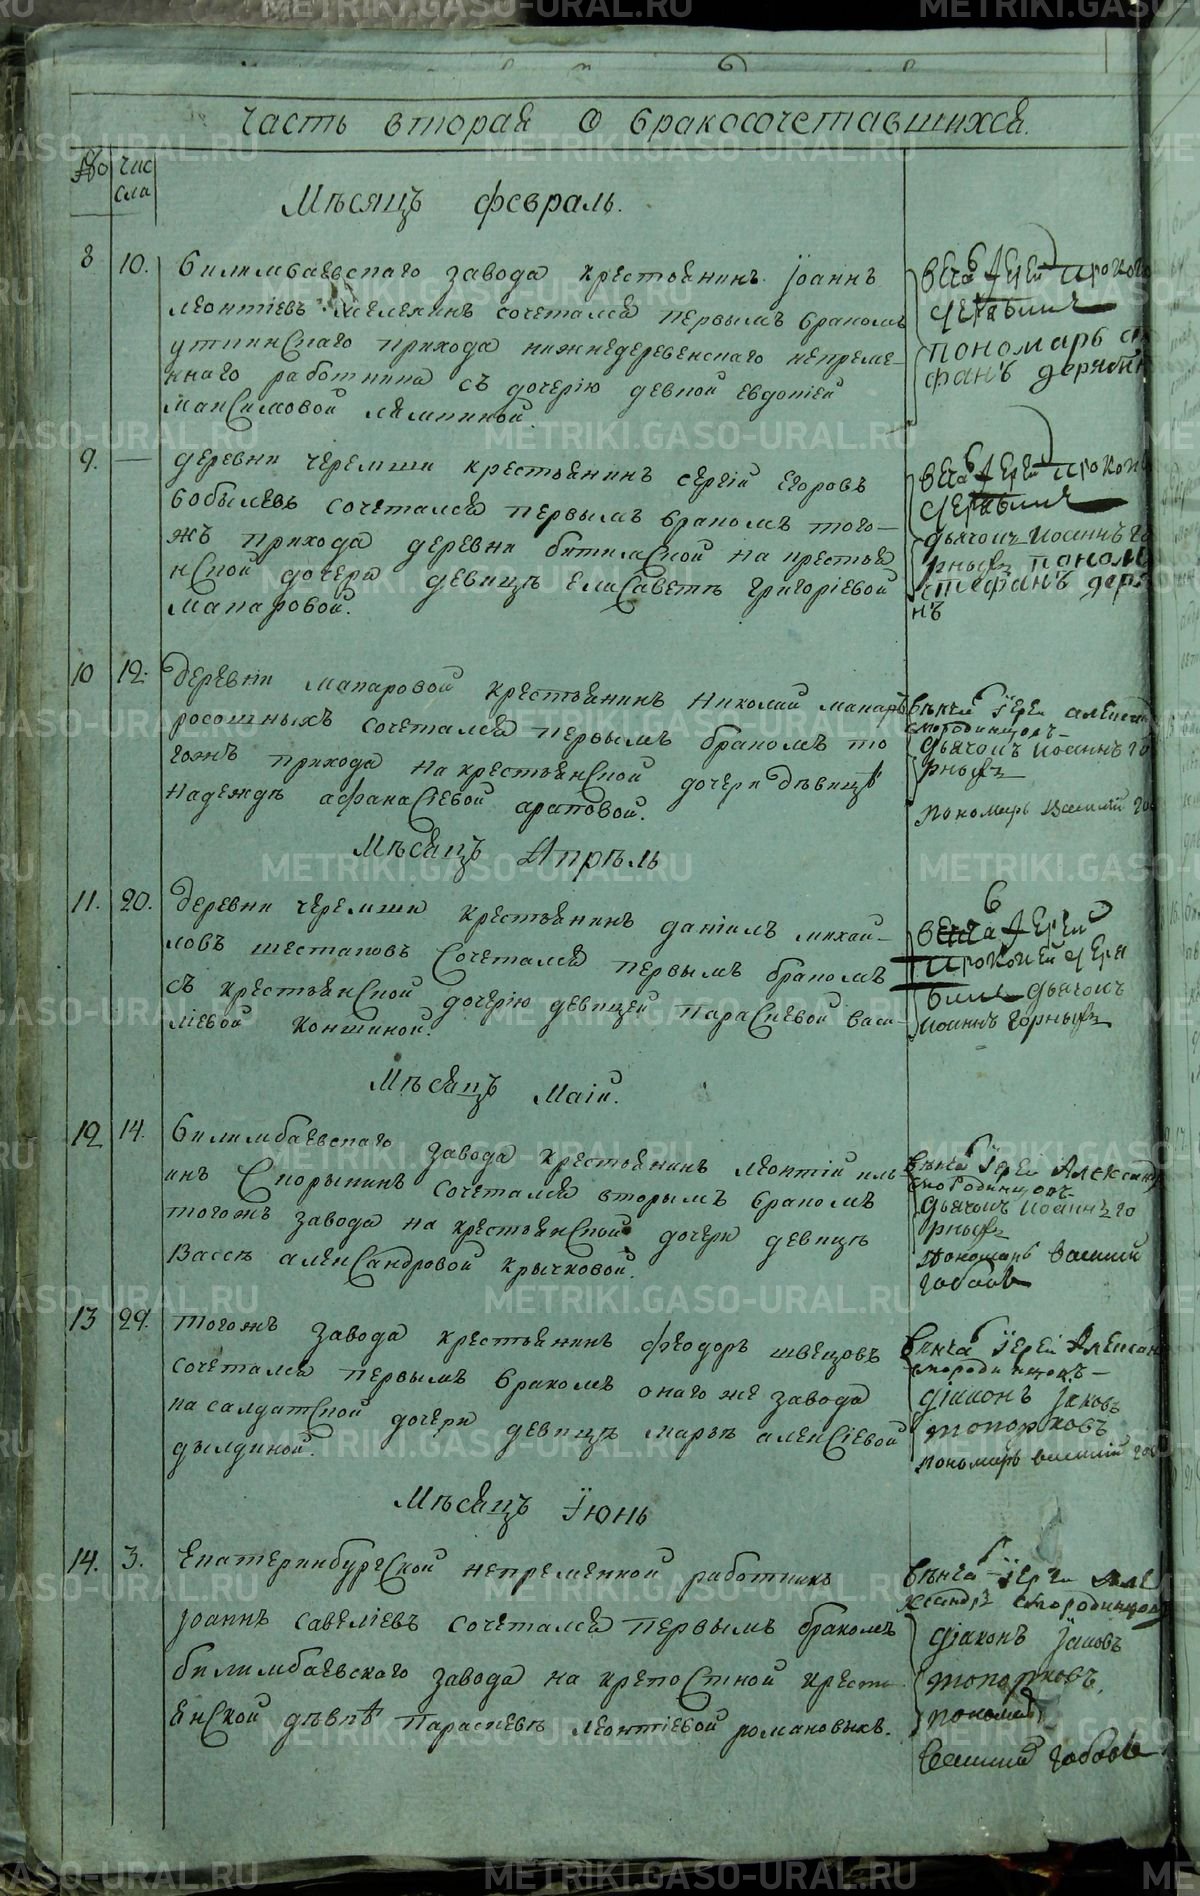 Часть вторая о бракосочетавшихся.
№ Чис
сла
Мѣсяцъ февраль.
8 10. Билимбаевскаго завода крестьянинъ Іоаннъ
Леонтіевъ сочетался первымъ бракомъ
уткинскаго прихода нижнедеревенскаго непреме-
ннаго работника съ дочерію девкой Евдокіей
Максимовой
Венча Іерей Проко
Серебрен
пономарь Сте
фанъ деряби
9. — деревни Черемши крестьянинъ Сергій Егоровъ
Бобылевъ сочетался первымъ бракомъ того-
жъ прихода деревни битимской на крестья
нской дочери девицѣ Елисаветѣ Григоріевой
Макаровой.
Венча Іерей Прокоп
дьячокъ Иоаннъ Го
рныхъ поном
стефанъ деря
нъ
10 12. деревни Макаровой крестьянинъ Николай Макаръ
росошныхъ сочетался первымъ бракомъ то
гожъ прихода на крестьянской дочери дѣвицѣ
Надеждѣ Афанасіевой Араповой.
Вѣнча Іерей Александ
Смородинцовъ
дьячокъ Иоаннъ Го
рныхъ
Пономарь Василій Го
Мѣсяцъ Апрѣль
11. 20. деревни Черемши крестьянинъ Даніилъ Михай-
ловъ шестаковъ сочетался первымъ бракомъ
съ крестьянской дочерію девицей Параскевой Васи-
ліевой Коншиной.
Венча Іерей
Прокопей Сере
дьячокъ
Иоаннъ Горныхъ
Мѣсяцъ Маій.
12 14. Билимбаевскаго завода крестьянинъ Леонтій Иль
инъ Скорынинъ сочетался вторымъ бракомъ
тогожъ завода на крестьянской дочери девицѣ
Вассѣ Александровой Крычковой.
Вѣнча Іерей Александ
Смородинцовъ
дьячокъ Иоаннъ Го
рныхъ
пономарь Василий
13 29. тогожъ завода крестьянинъ Феодоръ Швецовъ
сочетался первымъ бракомъ онаго же завода
на салдатской дочери девицѣ Марьѣ Алексіевой
дылдиной.
Вѣнча Іерей Алексан
Смородинцовъ
діаконъ Іаковъ
топорковъ
пономарь Василій
Мѣсяцъ Іюнь
14. 3. Екатеринбургской непременной работникъ
Іоаннъ Савеліевъ сочетался первымъ бракомъ
билимбаевскаго завода на крепостной кресть
янской дѣвкѣ Параскевѣ Леонтіевой романовыхъ.
Вѣнча Іерей Але
ксандръ Смородинцовъ
діаконъ Іаковъ
топорковъ
пономарь
Василій
METRIKI.GASO-URAL.RU